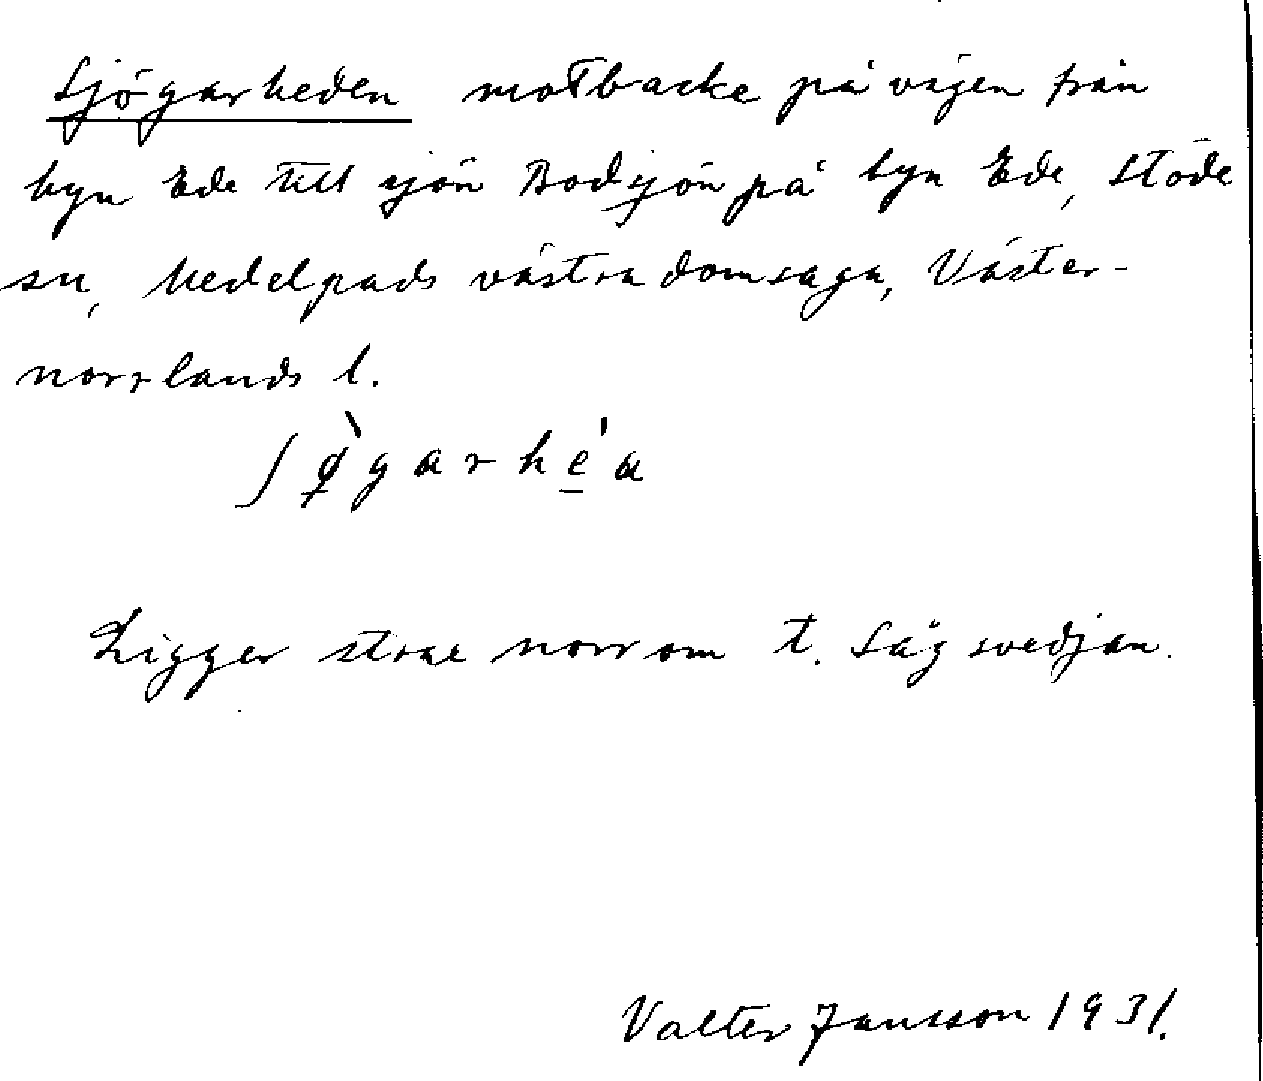 Sjögarheden motbacke på vägen från
byn Ede till sjön Bodsjön på byn Ede, Stöde
sn, Medelpads västra domsaga, Väster-
norrlands l.
ʃø̀garhe̠'a
Ligger strax norr om t. Sägsvedjan.
Valter Jansson 1931.